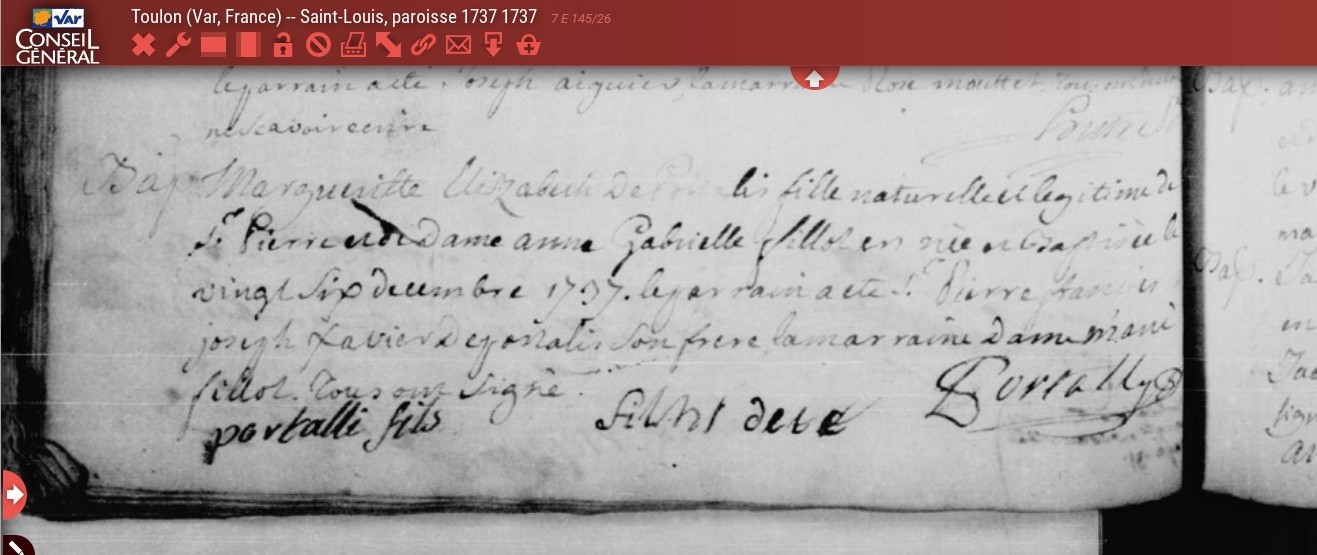 Var
CONSEIL
GÉNÉRAL
Toulon (Var, France) -- Saint-Louis, paroisse 1737 1737 7 E 145/26
le parrain a eté Joseph aiguier, la marraine Rose mouttet. tous
ne scavoir ecrire
Bap. Margueritte Elizabeth De Portalis fille naturelle et legitime de
Sr. Pierre et de Dame anne Gabrielle fillol en née et baptisée le
vingt six decembre 1737. le parrain a eté Sr. Pierre francois
joseph Xavier De portalis son frere la marraine Dame
fillol. Tous ont signé.
portalli fils
Portally
Bap.
Bap.